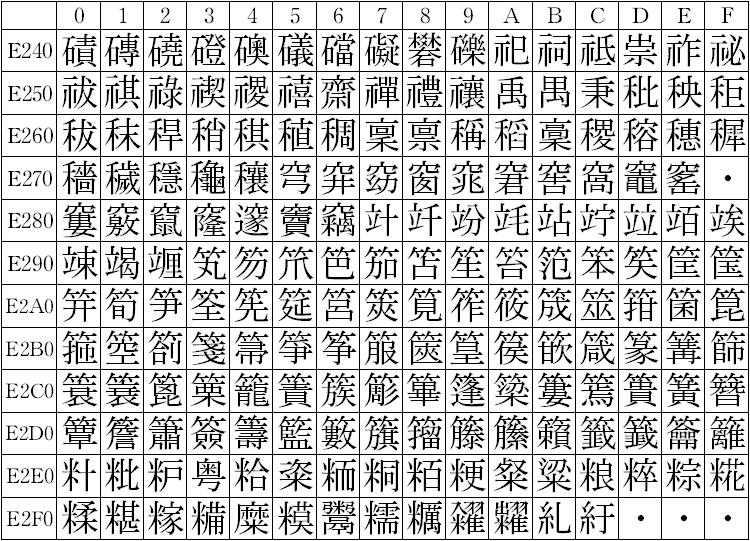 0 1 2 3 4 5 6 7 8 9 A B C D E F
E240 磧 磚 磽 磴 礇 礒 礑 礙 礬 礫 祀 祠 祗 祟 祚 祕
E250 祓 祺 祿 禊 禝 禧 齋 禪 禮 禳 禹 禺 秉 秕 秧 秬
E260 秡 秣 稈 稍 稘 稙 稠 稟 禀 稱 稻 稾 稷 穃 穗 穉
E270 穡 穢 穩 龝 穰 穹 穽 窈 窗 窕 窘 窖 窩 竈 窰 ・
E280 窶 竅 竄 窿 邃 竇 竊 竍 竏 竕 竓 站 竚 竝 竡 竢
E290 竦 竭 竰 笂 笏 笊 笆 笳 笘 笙 笞 笵 笨 笶 筐 筺
E2A0 笄 筍 笋 筌 筅 筵 筥 筴 筧 筰 筱 筬 筮 箝 箘 箟
E2B0 箍 箜 箚 箋 箒 箏 筝 箙 篋 篁 篌 篏 箴 篆 篝 篩
E2C0 簑 簔 篦 篥 籠 簀 簇 簓 篳 篷 簗 簍 篶 簣 簧 簪
E2D0 簟 簷 簫 簽 籌 籃 籔 籏 籀 籐 籘 籟 籤 籖 籥 籬
E2E0 籵 粃 粐 粤 粭 粢 粫 粡 粨 粳 粲 粱 粮 粹 粽 糀
E2F0 糅 糂 糘 糒 糜 糢 鬻 糯 糲 糴 糶 糺 紆 ・ ・ ・